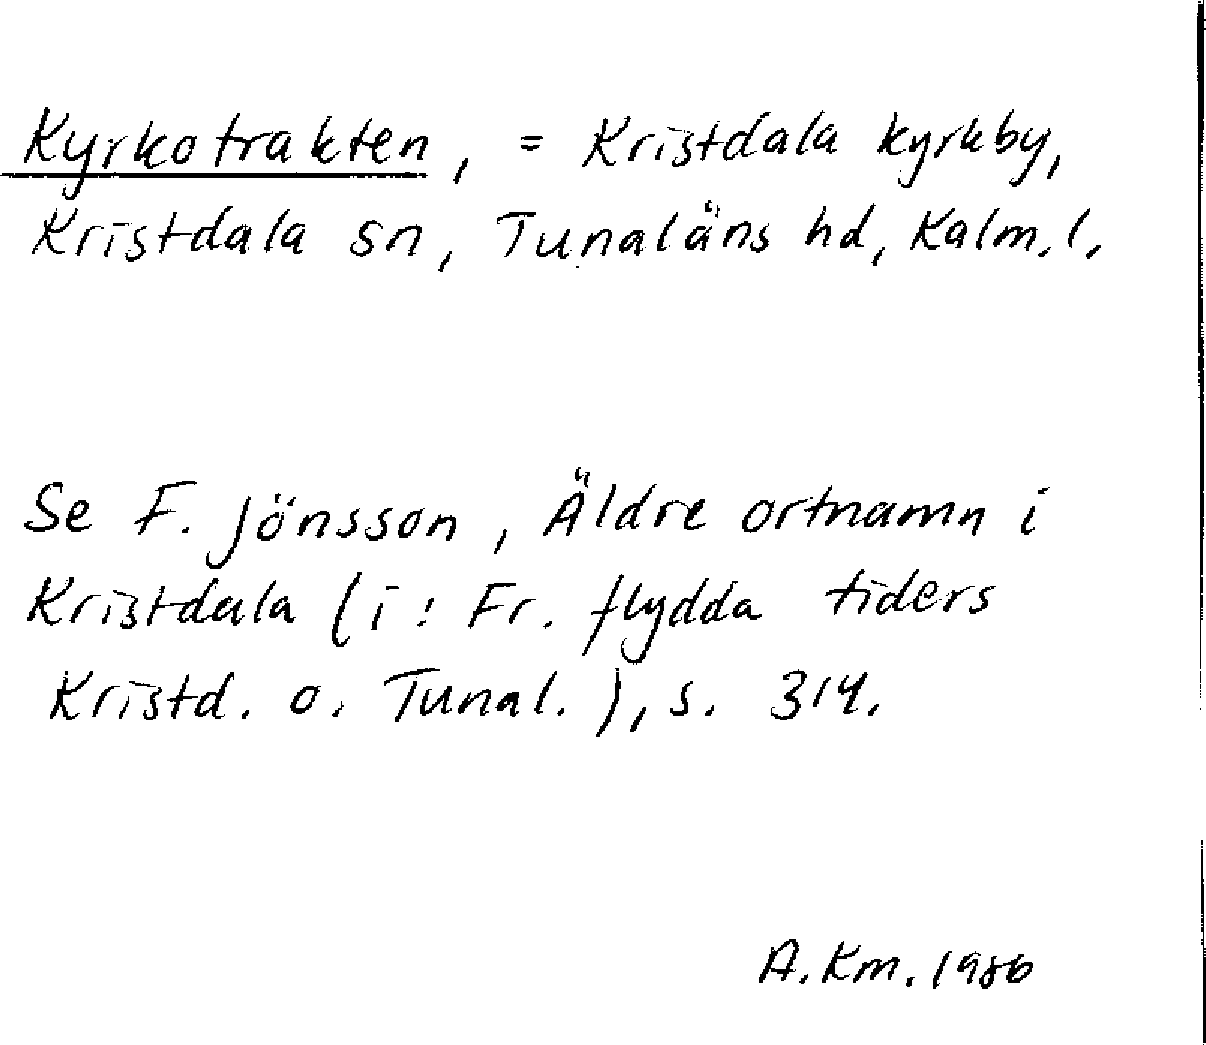 Kyrkotrakten, = Kristdala kyrkby,
Kristdala sn, Tunaläns hd, Kalm. l.
Se F. Jönsson, Äldre ortnamn i
Kristdala (i: Fr. flydda tiders
Kristd. o. Tunal.), s. 314.
A. Km. 1986